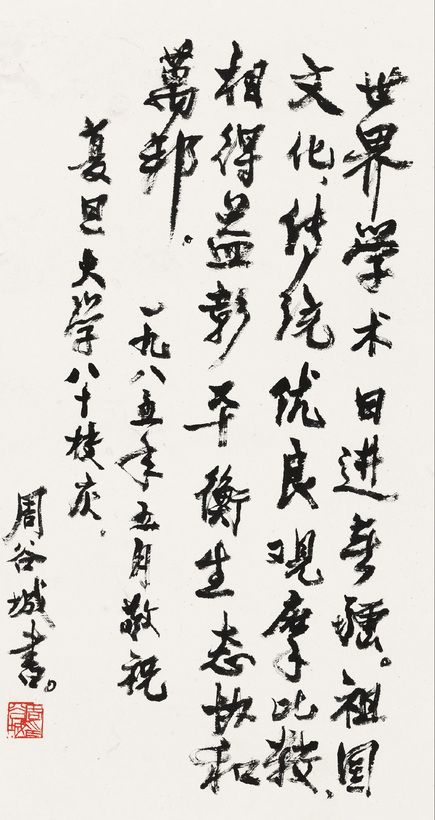 世界學术日进無疆。祖国
文化、传统优良观摩比較、
相得益彰平衡生态协和
萬邦。
一九八五年五月敬祝
复旦大學八十校庆、
周谷城書。